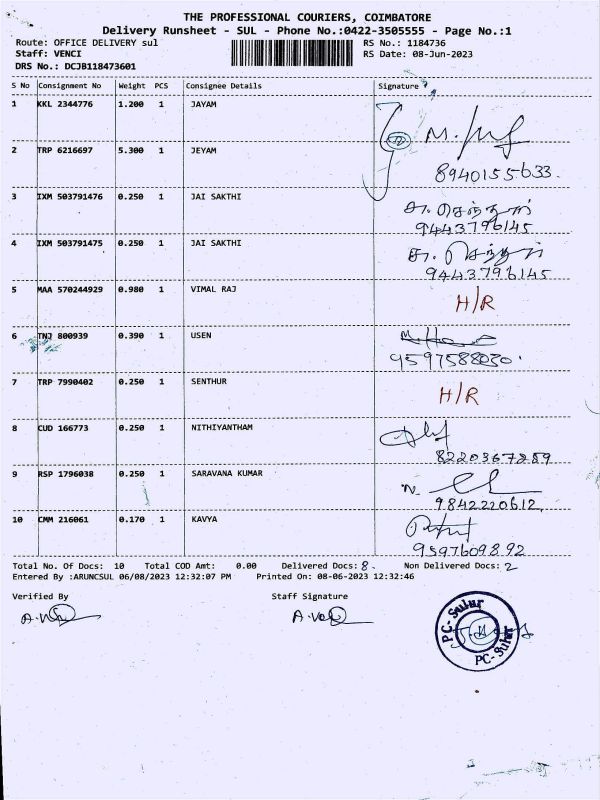 THE PROFESSIONAL COURIERS, COIMBATORE
Delivery Runsheet - SUL - Phone No.:0422-3505555 - Page No.:1
Route: OFFICE DELIVERY sul RS No.: 1184736
Staff: VENCI RS Date: 08-Jun-2023
DRS No.: DCJB118473601
S No Consignment No Weight PCS Consignee Details Signature
1 KKL 2344776 1.200 1 JAYAM
2 TRP 6216697 5.300 1 JEYAM
8940155633
3 IXM 503791476 0.250 1 JAI SAKTHI சா. செந்தூர்
9443796145
4 IXM 503791475 0.250 1 JAI SAKTHI சா. செந்தூர்
9443796145
5 MAA 570244929 0.980 1 VIMAL RAJ H/R
6 TNJ 800939 0.390 1 USEN
9597588030
7 TRP 7990402 0.250 1 SENTHUR H/R
8 CUD 166773 0.250 1 NITHIYANTHAM
8220367289
9 RSP 1796038 0.250 1 SARAVANA KUMAR
9842220612
10 CMM 216061 0.170 1 KAVYA
9597609892
Total No. Of Docs: 10 Total COD Amt: 0.00 Delivered Docs: 8 Non Delivered Docs: 2
Entered By :ARUNCSUL 06/08/2023 12:32:07 PM Printed On: 08-06-2023 12:32:46
Verified By Staff Signature
PC-Sulur
PC-Sulur